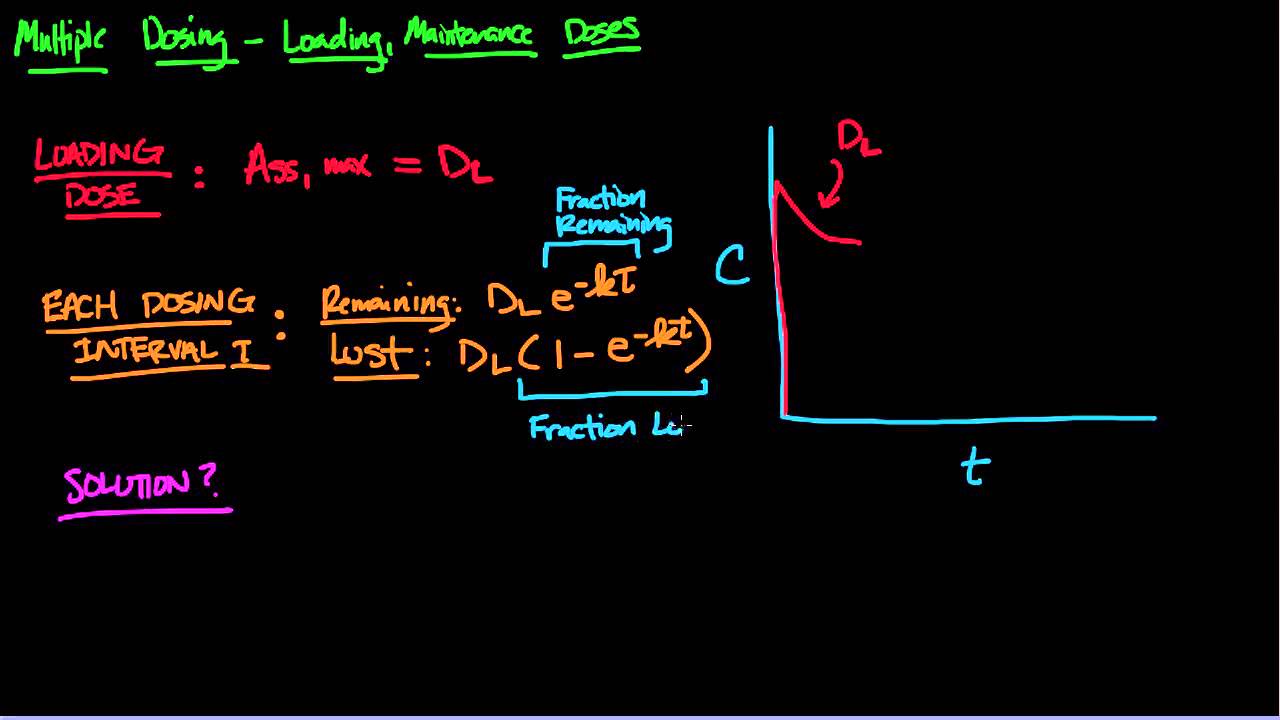 Multiple Dosing - Loading, Maintenance Doses
LOADING
DOSE : Ass, max = DL
Fraction
Remaining
EACH DOSING
INTERVAL τ :
Remaining: DL e^-kτ
Lost: DL (1 - e^-kτ)
Fraction Lo
SOLUTION?
DL
C
t